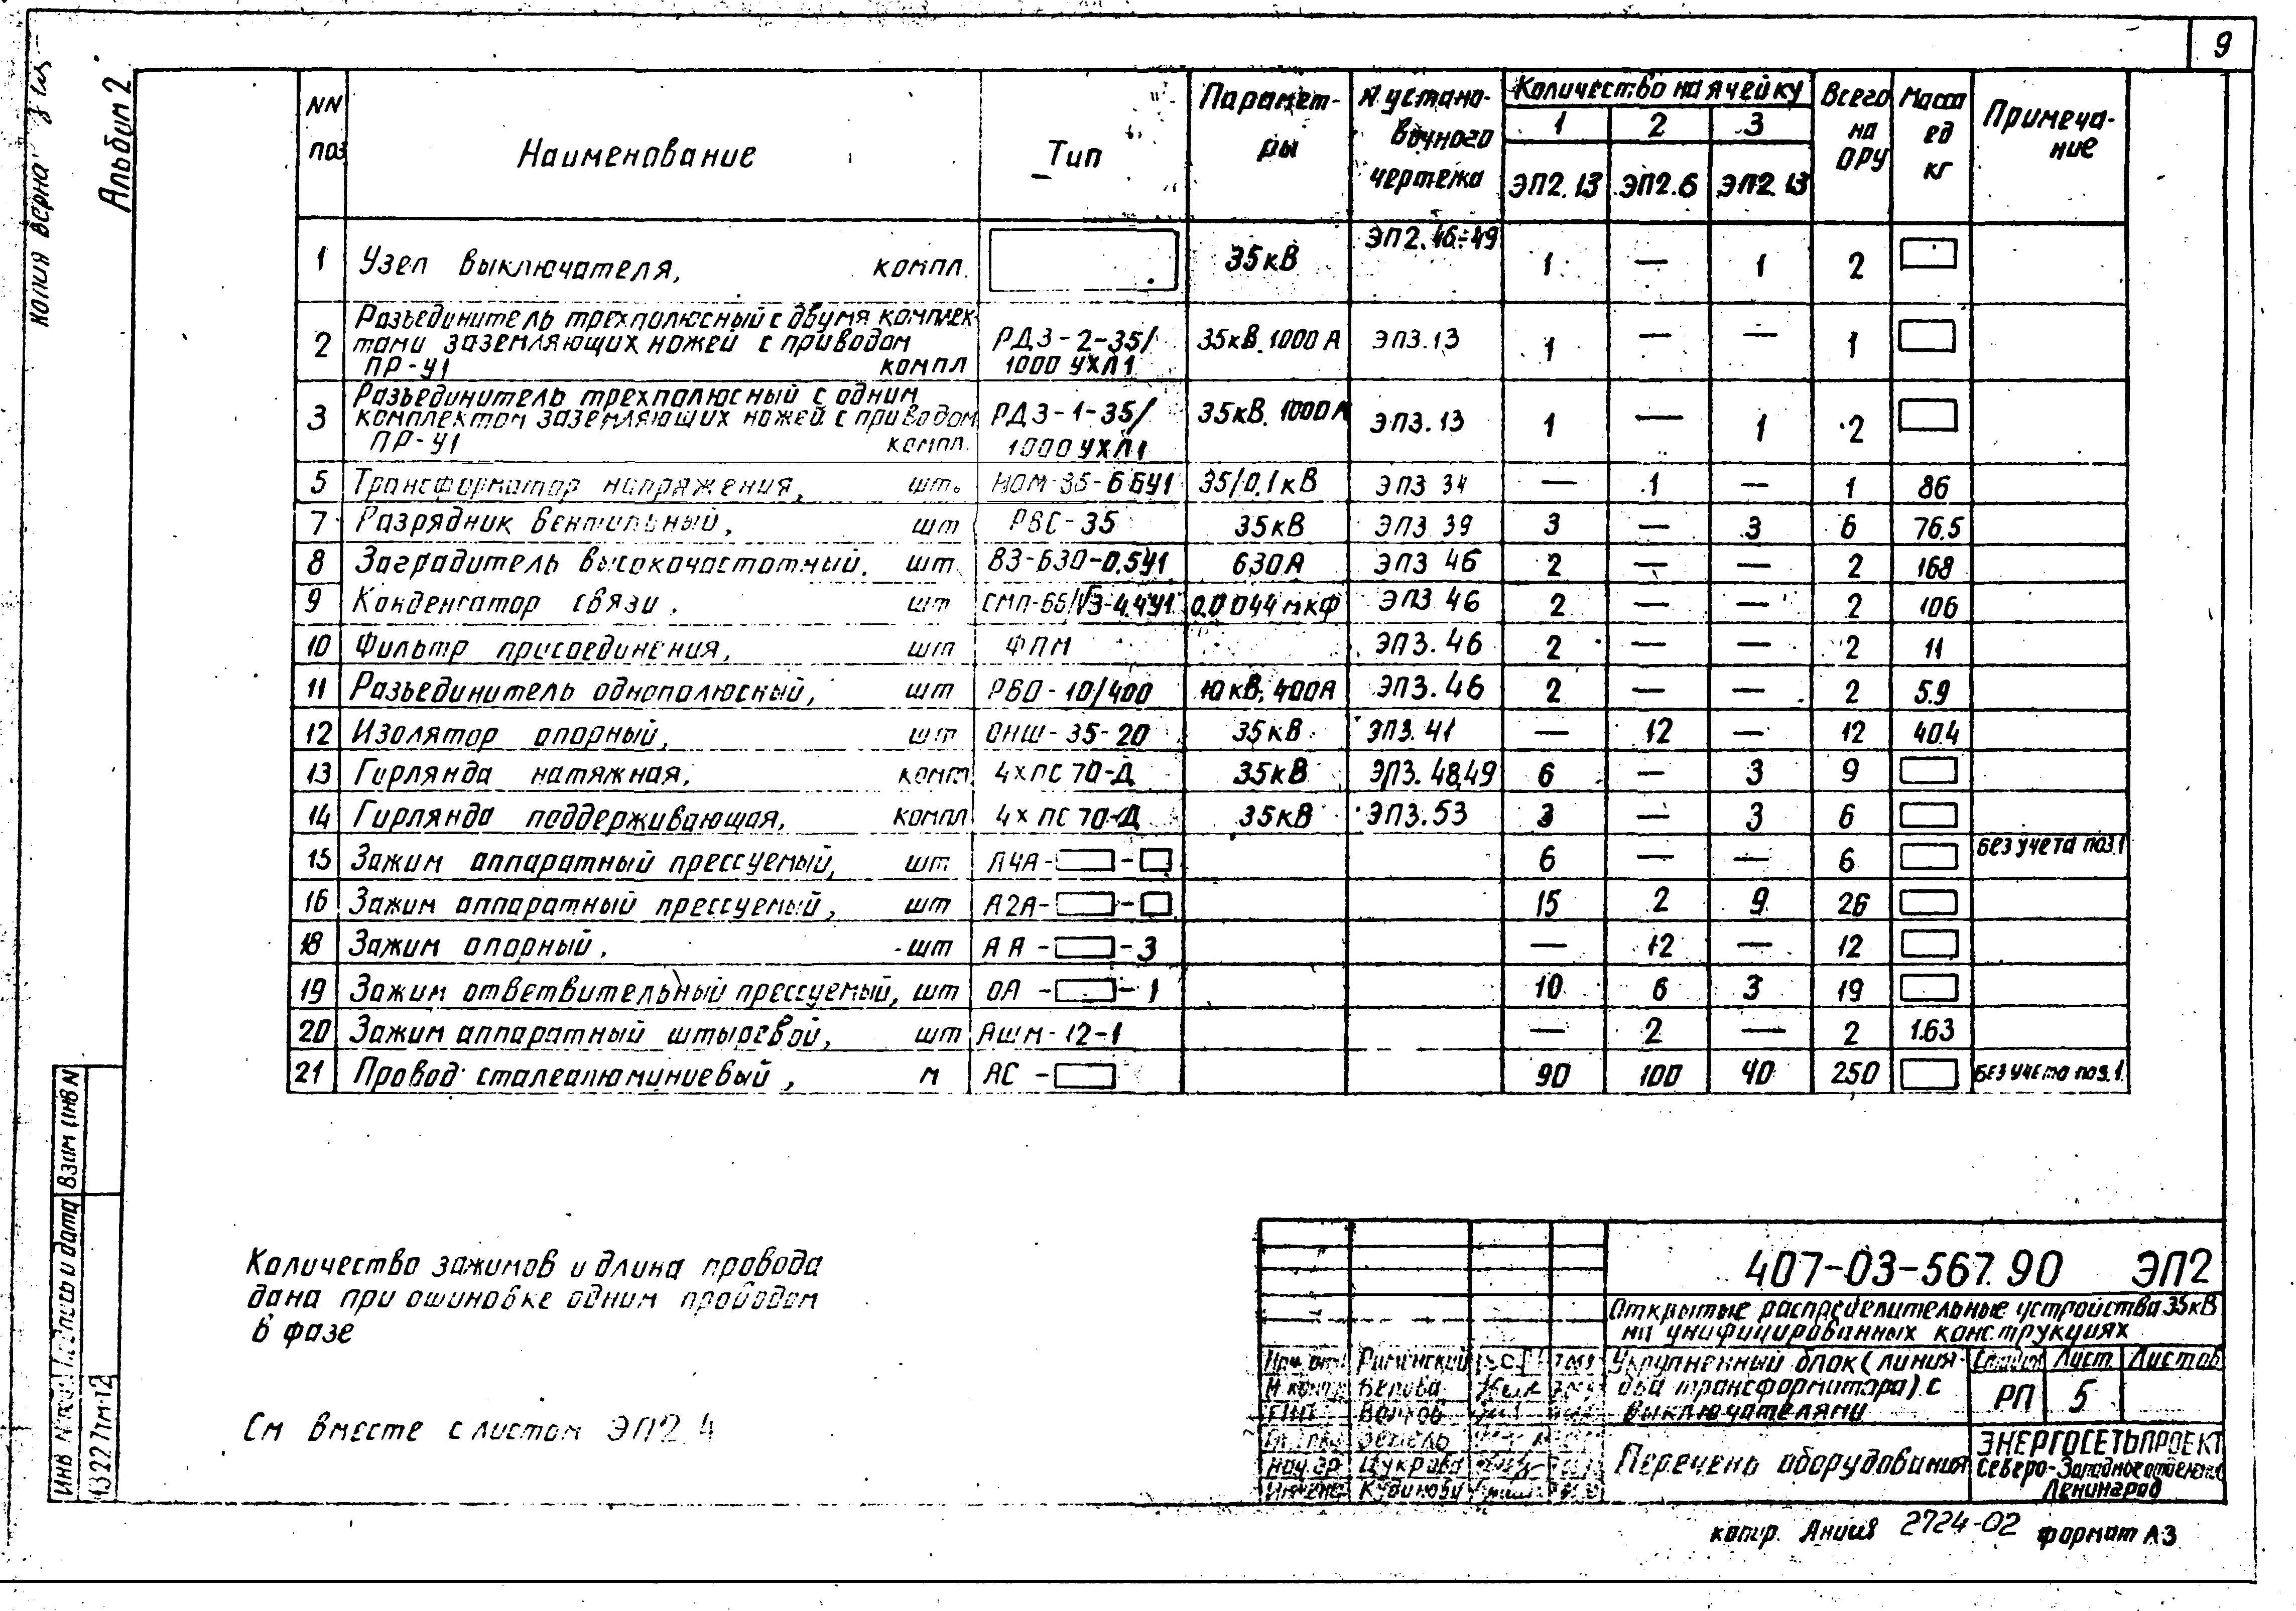 9
копия верна
Альбом 2
NN поз | Наименование | Тип | Параметры | N установочного чертежа | Количество на ячейку | Всего на ОРУ | Масса ед кг | Примечание
1 | 2 | 3
ЭП2.13 | ЭП2.6 | ЭП2.13
1 | Узел выключателя, компл. | | 35кВ | ЭП2.46÷49 | 1 | — | 1 | 2
2 | Разъединитель трехполюсный с двумя комплектами заземляющих ножей с приводом ПР-У1 компл | РДЗ-2-35/1000 УХЛ1 | 35кВ, 1000А | ЭП3.13 | 1 | — | — | 1
3 | Разъединитель трехполюсный с одним комплектом заземляющих ножей с приводом ПР-У1 компл. | РДЗ-1-35/1000 УХЛ1 | 35кВ, 1000А | ЭП3.13 | 1 | — | 1 | 2
5 | Трансформатор напряжения, шт. | НОМ-35-66У1 | 35/0,1кВ | ЭП3 34 | — | 1 | — | 1 | 86
7 | Разрядник вентильный, шт | РВС-35 | 35кВ | ЭП3 39 | 3 | — | 3 | 6 | 76.5
8 | Заградитель высокочастотный, шт | ВЗ-630-0,5У1 | 630А | ЭП3 46 | 2 | — | — | 2 | 168
9 | Конденсатор связи, шт | СМП-66/√3-4,4У1 | 0,0044мкФ | ЭП3 46 | 2 | — | — | 2 | 106
10 | Фильтр присоединения, шт | ФПМ | | ЭП3.46 | 2 | — | — | 2 | 11
11 | Разъединитель однополюсный, шт | РВО-10/400 | 10кВ, 400А | ЭП3.46 | 2 | — | — | 2 | 5.9
12 | Изолятор опорный, шт | ОНШ-35-20 | 35кВ | ЭП3.41 | — | 12 | — | 12 | 40.4
13 | Гирлянда натяжная, компл | 4хПС70-Д | 35кВ | ЭП3.48,49 | 6 | — | 3 | 9
14 | Гирлянда поддерживающая, компл | 4хПС70-Д | 35кВ | ЭП3.53 | 3 | — | 3 | 6
15 | Зажим аппаратный прессуемый, шт | А4А- - | | | 6 | — | — | 6 | | БЕЗ учета поз.1
16 | Зажим аппаратный прессуемый, шт | А2А- - | | | 15 | 2 | 9 | 26
18 | Зажим опорный, шт | АА- -3 | | | — | 12 | — | 12
19 | Зажим ответвительный прессуемый, шт | ОА- -1 | | | 10 | 6 | 3 | 19
20 | Зажим аппаратный штыревой, шт | АШМ-12-1 | | | — | 2 | — | 2 | 1.63
21 | Провод сталеалюминиевый, м | АС- | | | 90 | 100 | 40 | 250 | | БЕЗ учета поз.1.
Количество зажимов и длина провода
дана при ошиновке одним проводом
в фазе
См вместе с листом ЭП2.4
Взам инв N
Подпись и дата
Инв N подл
407-03-567.90 ЭП2
Открытые распределительные устройства 35кВ
на унифицированных конструкциях
Укрупненный блок (линия-
два трансформатора) с
выключателями
Стадия | Лист | Листов
РП | 5
Н контр Белова
ГИП Волков
Нач гр Цукрова
Инжен
Перечень оборудования
ЭНЕРГОСЕТЬПРОЕКТ
Северо-Западное отделение
Ленинград
копир. 2724-02 формат А3